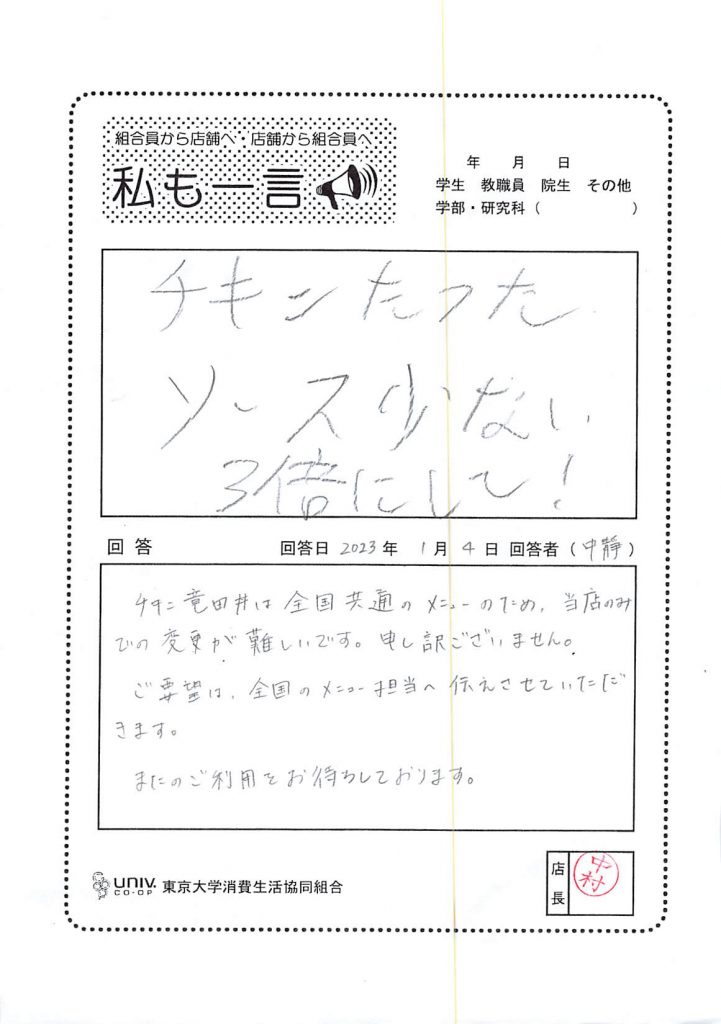 組合員から店舗へ・店舗から組合員へ
私も一言
年 月 日
学生 教職員 院生 その他
学部・研究科( )
チキンたつた
ソース少ない
3倍にして!
回答 回答日 2023年 1月 4日 回答者(中靜)
チキン竜田丼は全国共通のメニューのため、当店のみ
での変更が難しいです。申し訳ございません。
ご要望は、全国のメニュー担当へ伝えさせていただ
きます。
またのご利用をお待ちしております。
UNIV. CO-OP 東京大学消費生活協同組合
店長 中村